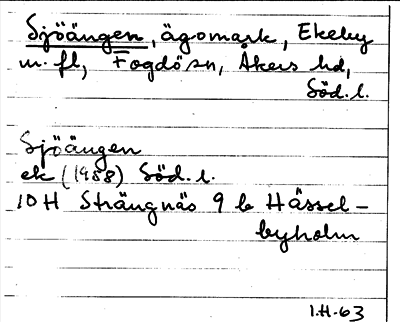 Sjöängen, ägomark, Ekeby
m. fl, Fogdö sn, Åkers hd,
Söd. l.
Sjöängen
ek (1958) Söd. l.
10H Strängnäs 9 b Hässel-
byholm
I.H-63